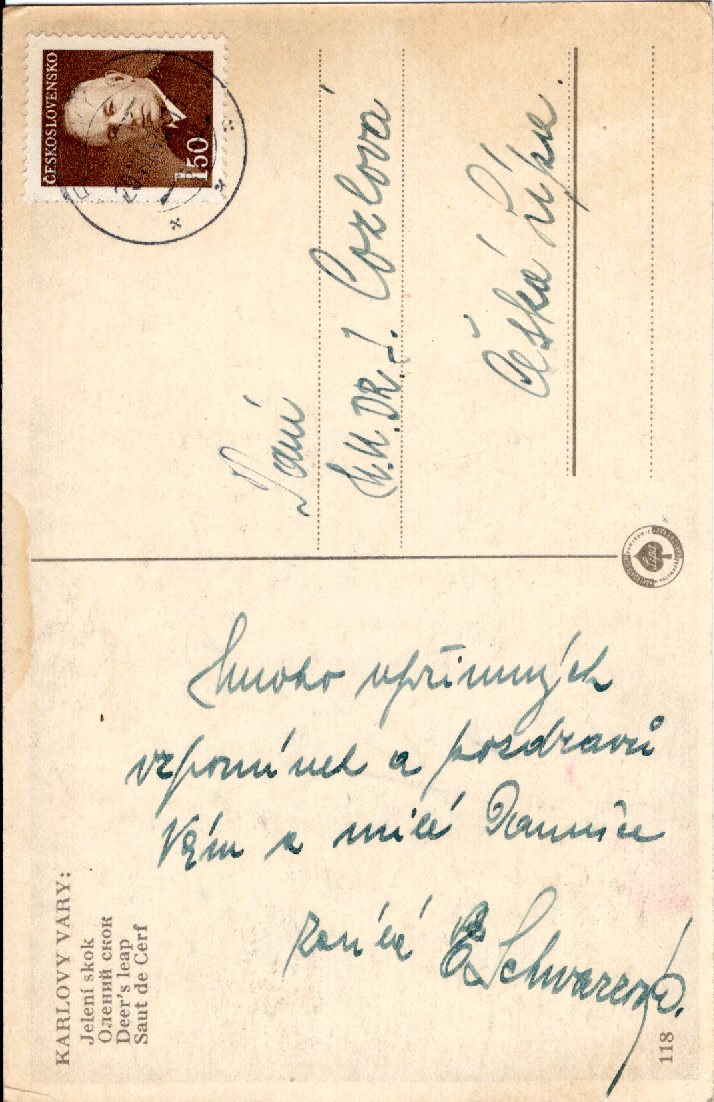 KARLOVY VARY:
Jelení skok
Олений скок
Deer's leap
Saut de Cerf
Mnoho upřímných
vzpomínek a pozdravů
Vám a milé
E. Schwarzová.
118
ČESKOSLOVENSKO
1·50
Paní
DR. I. Cozlová
Česká Lípa.